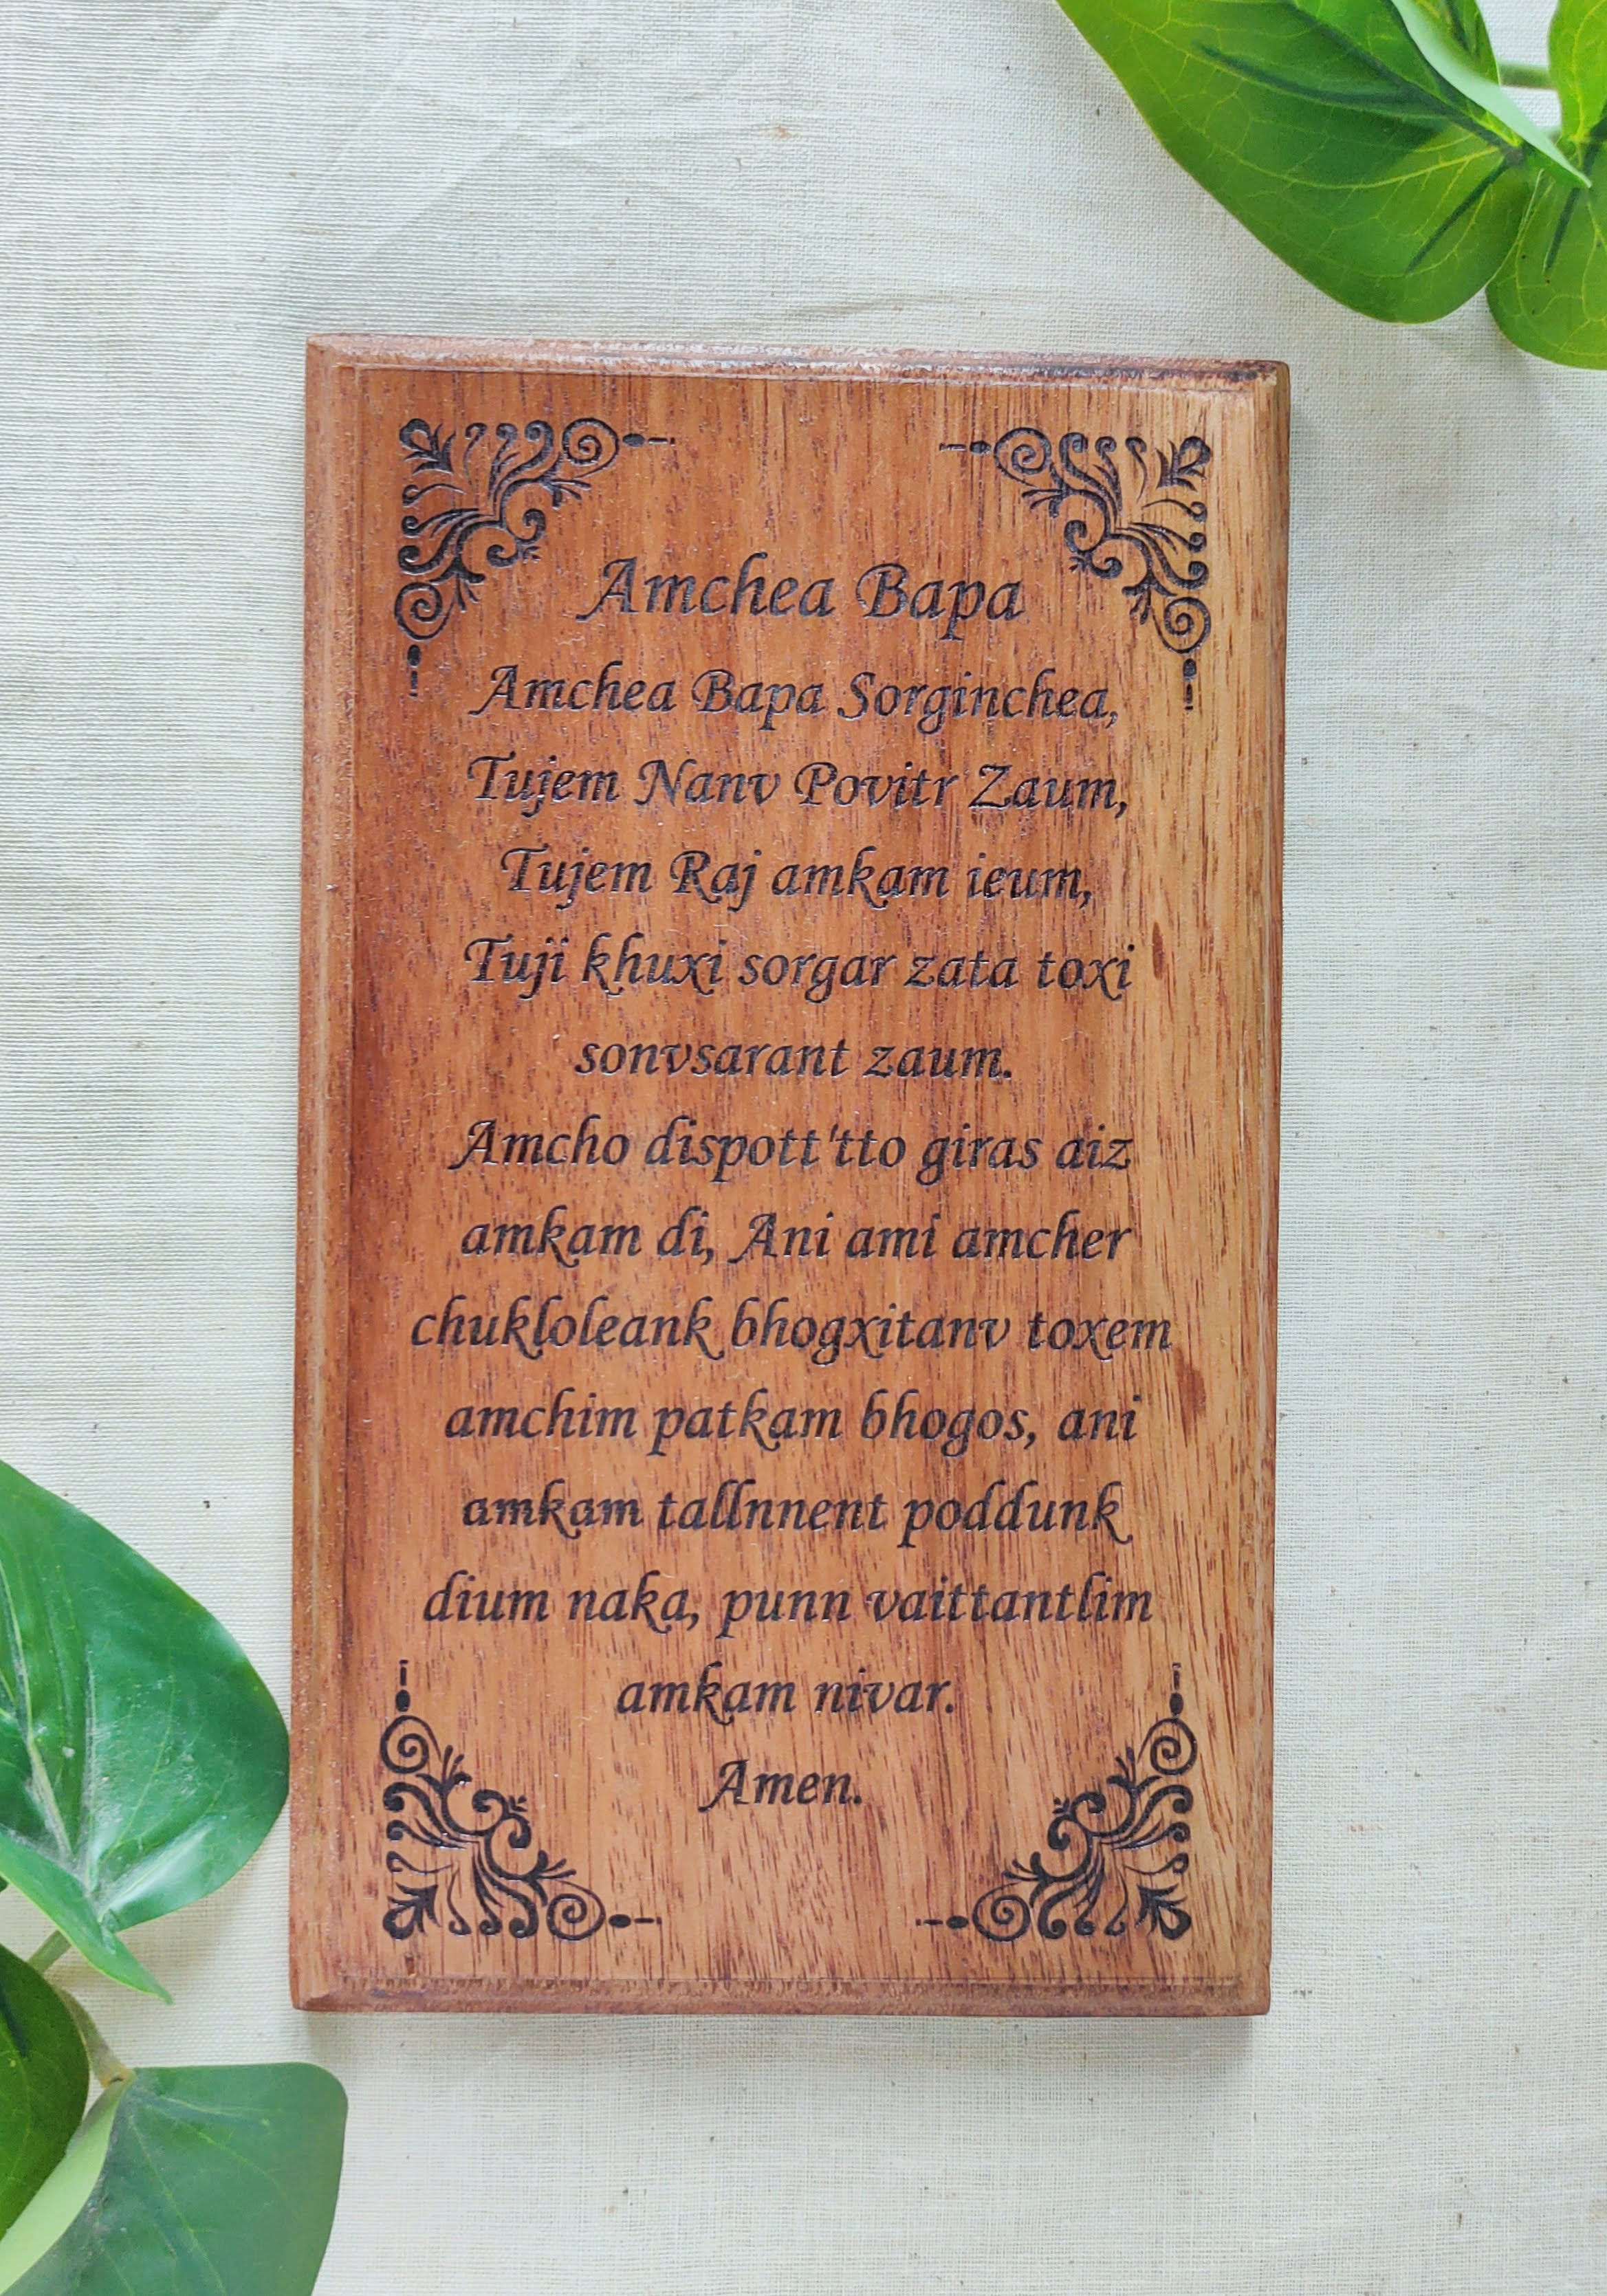 Amchea Bapa
Amchea Bapa Sorginchea,
Tujem Nanv Povitr Zaum,
Tujem Raj amkam ieum,
Tuji khuxi sorgar zata toxi
sonvsarant zaum.
Amcho dispott'tto giras aiz
amkam di, Ani ami amcher
chukloleank bhogxitanv toxem
amchim patkam bhogos, ani
amkam tallnnent poddunk
dium naka, punn vaittantlim
amkam nivar.
Amen.